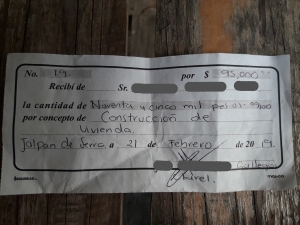 No. 19 por $ 95,000.00
Recibí de Sr.
la cantidad de Noventa y cinco mil pesos 00/100
por concepto de Construcción de
Vivienda.
Jalpan de Serra a 21 de Febrero de 2019